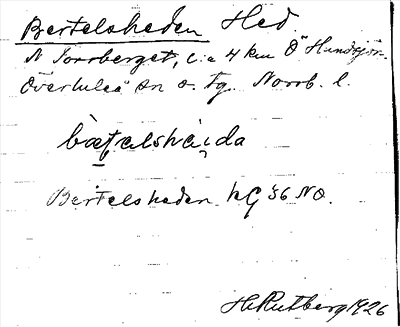 Bertelsheden Hed
N Torrberget, c:a 4 km Ö Hundsjön.
Överluleå sn o. tg. Norrb. l.
bæʈalsha̍i̢da
Bertelsheden kG 56 NO.
H. Rutberg 1926